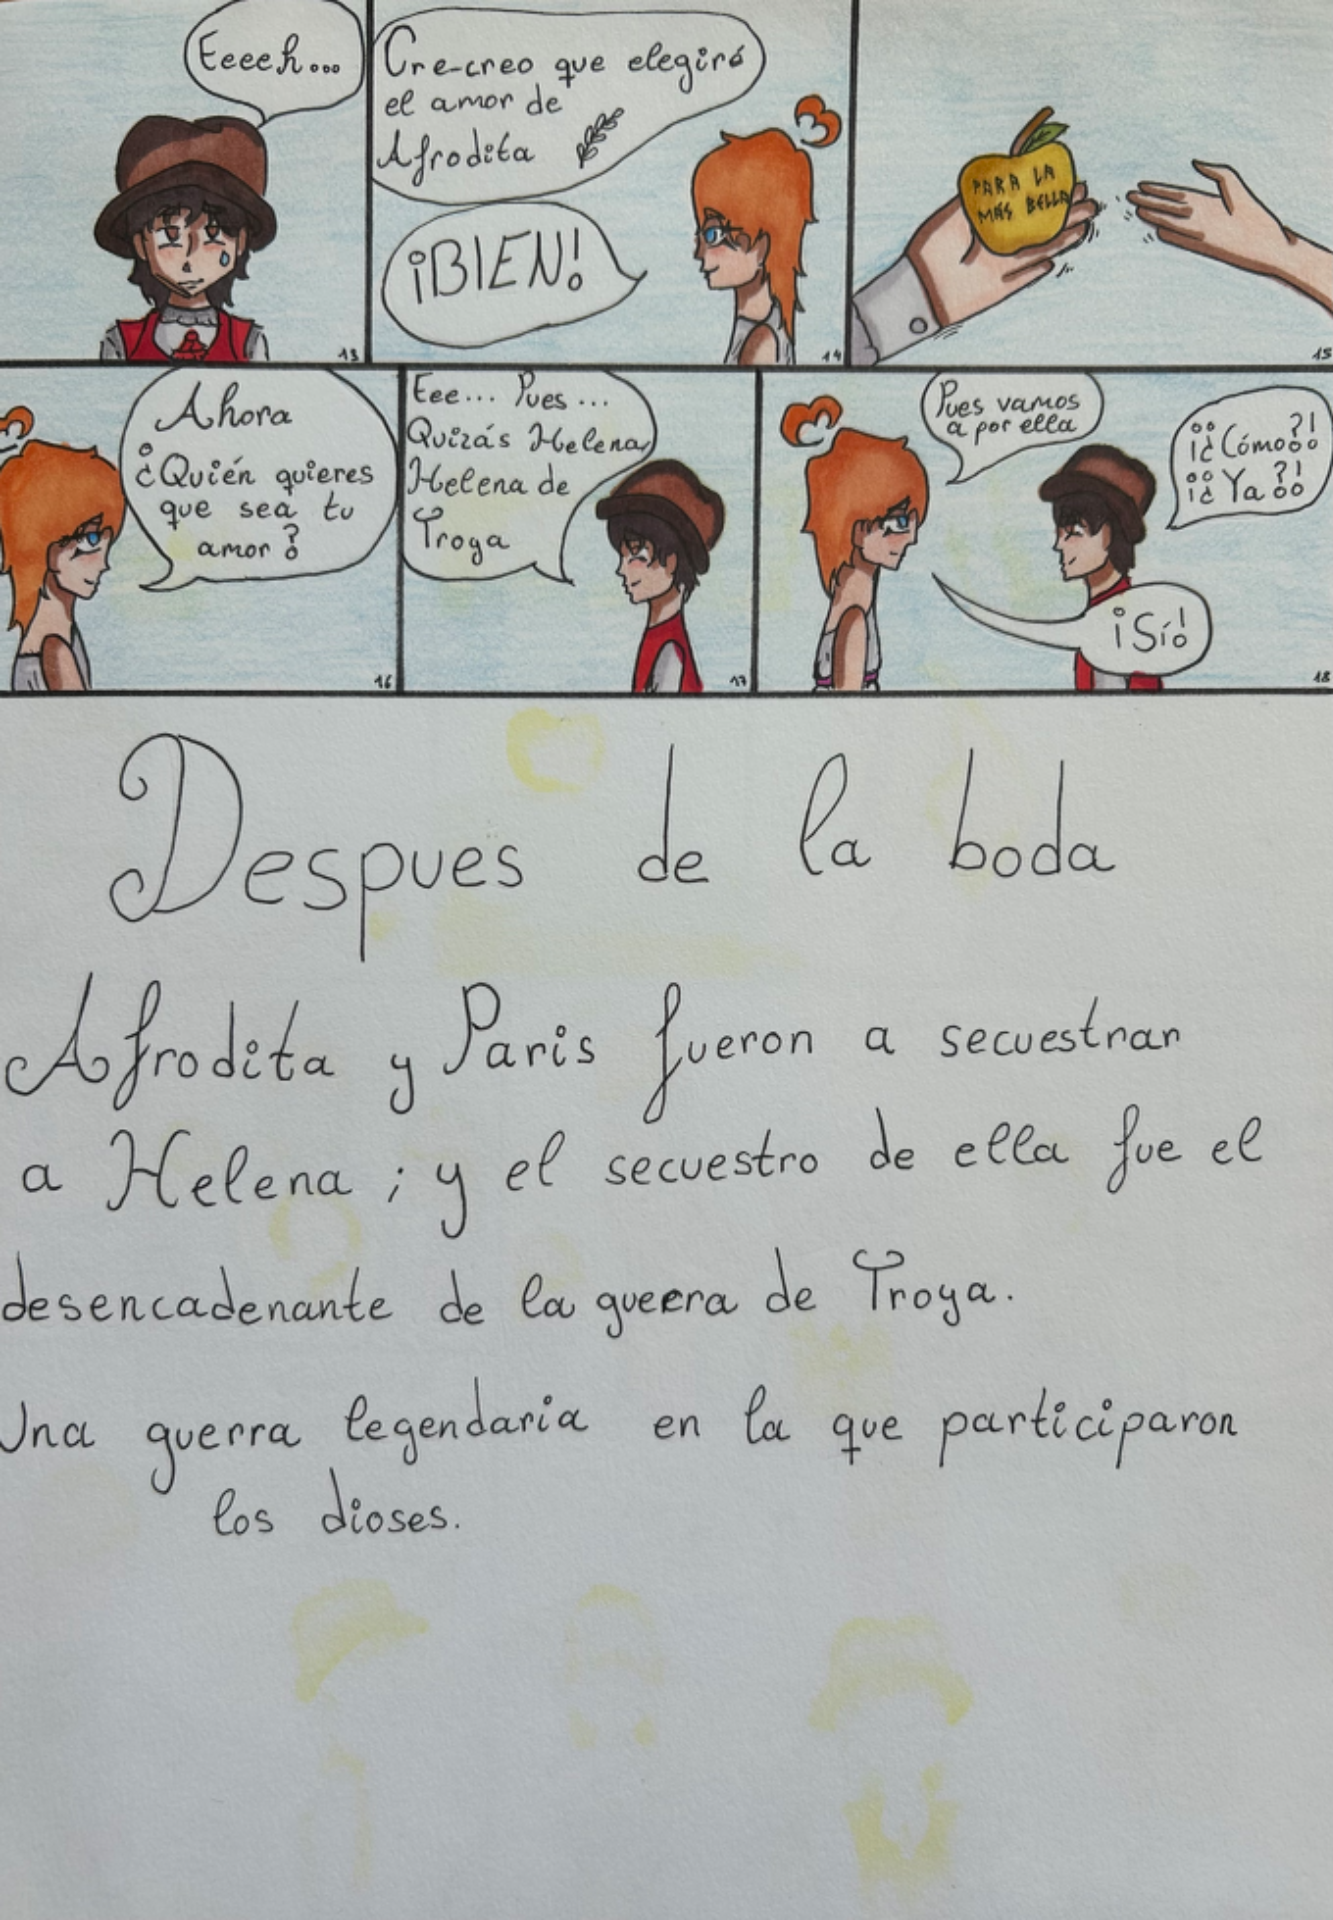 Eeeeh...
13
Cre-creo que elegiré
el amor de
Afrodita
¡BIEN!
14
PARA LA
MÁS BELLA
15
Ahora
¿Quién quieres
que sea tu
amor?
16
Eee... Pues...
Quizás Helena,
Helena de
Troya
17
Pues vamos
a por ella
¡¿Cómo?!
¡¿Ya?!
¡Sí!
18
Despues de la boda
Afrodita y Paris fueron a secuestrar
a Helena; y el secuestro de ella fue el
desencadenante de la guerra de Troya.
Una guerra legendaria en la que participaron
los dioses.